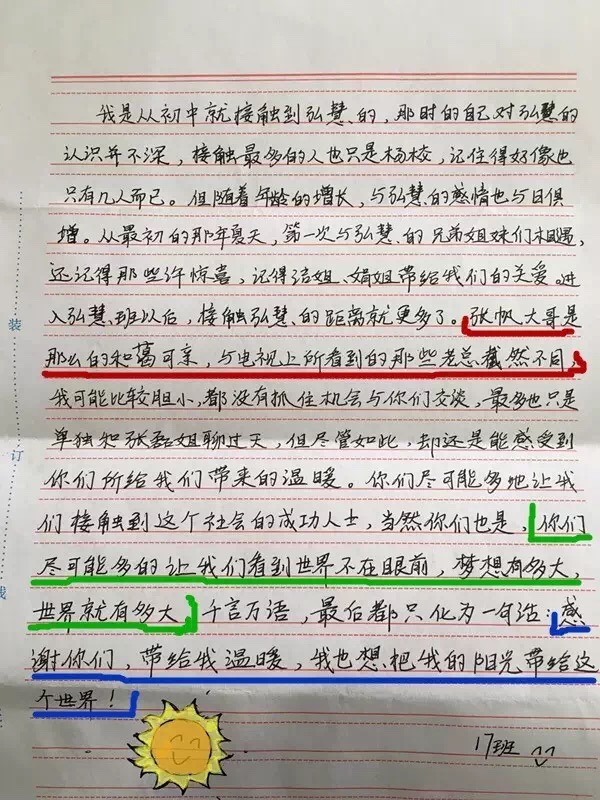 我是从初中就接触到弘慧的，那时的自己对弘慧的
认识并不深，接触最多的人也只是杨校，记住得好像也
只有几人而已。但随着年龄的增长，与弘慧的感情也与日俱
增。从最初的那年夏天，第一次与弘慧的兄弟姐妹们相遇，
还记得那些许惊喜，记得洁姐、娟姐带给我们的关爱。进
入弘慧班以后，接触弘慧的距离就更多了。张帆大哥是
那么的和蔼可亲，与电视上所看到的那些老总截然不同，
我可能比较胆小，都没有抓住机会与你们交谈，最多也只是
单独和张磊姐聊过天，但尽管如此，却还是能感受到
你们所给我们带来的温暖。你们尽可能多地让我
们接触到这个社会的成功人士，当然你们也是，你们
尽可能多的让我们看到世界不在眼前，梦想有多大，
世界就有多大，千言万语，最后都只化为一句话：感
谢你们，带给我温暖，我也想把我的阳光带给这
个世界！
17班
装
订